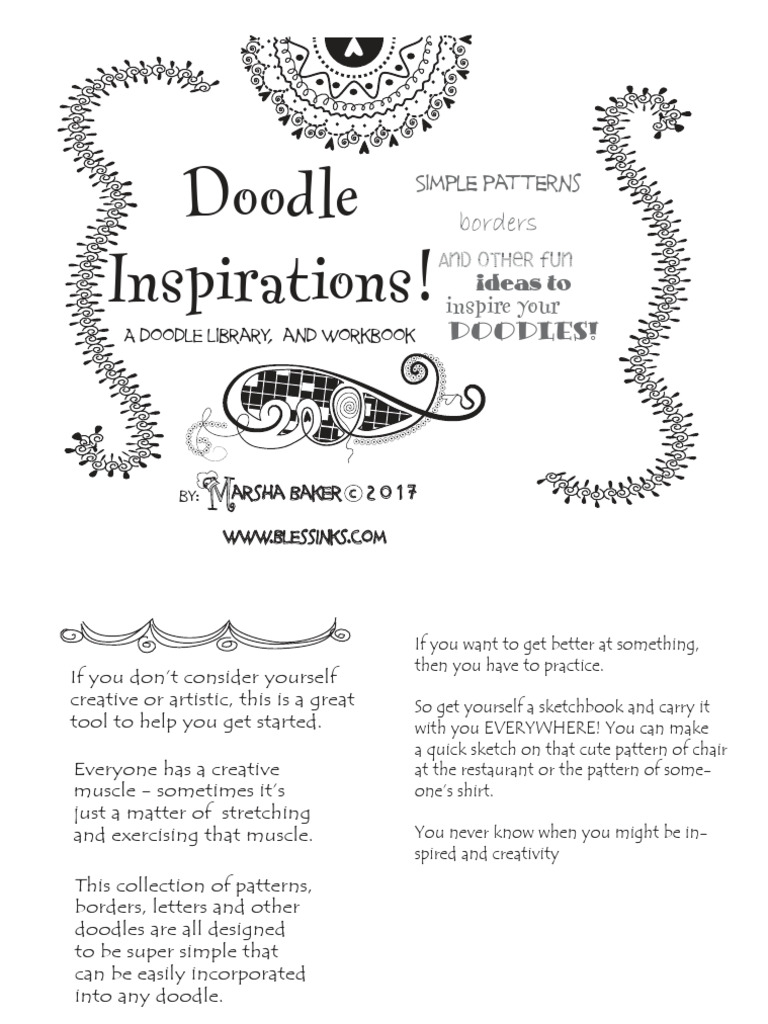 Doodle
Inspirations!
A DOODLE LIBRARY, AND WORKBOOK
SIMPLE PATTERNS
borders
AND OTHER FUN
ideas to
inspire your
DOODLES!
BY: MARSHA BAKER © 2017
WWW.BLESSINKS.COM
If you don't consider yourself
creative or artistic, this is a great
tool to help you get started.
Everyone has a creative
muscle - sometimes it's
just a matter of stretching
and exercising that muscle.
This collection of patterns,
borders, letters and other
doodles are all designed
to be super simple that
can be easily incorporated
into any doodle.
If you want to get better at something,
then you have to practice.
So get yourself a sketchbook and carry it
with you EVERYWHERE! You can make
a quick sketch on that cute pattern of chair
at the restaurant or the pattern of some-
one's shirt.
You never know when you might be in-
spired and creativity